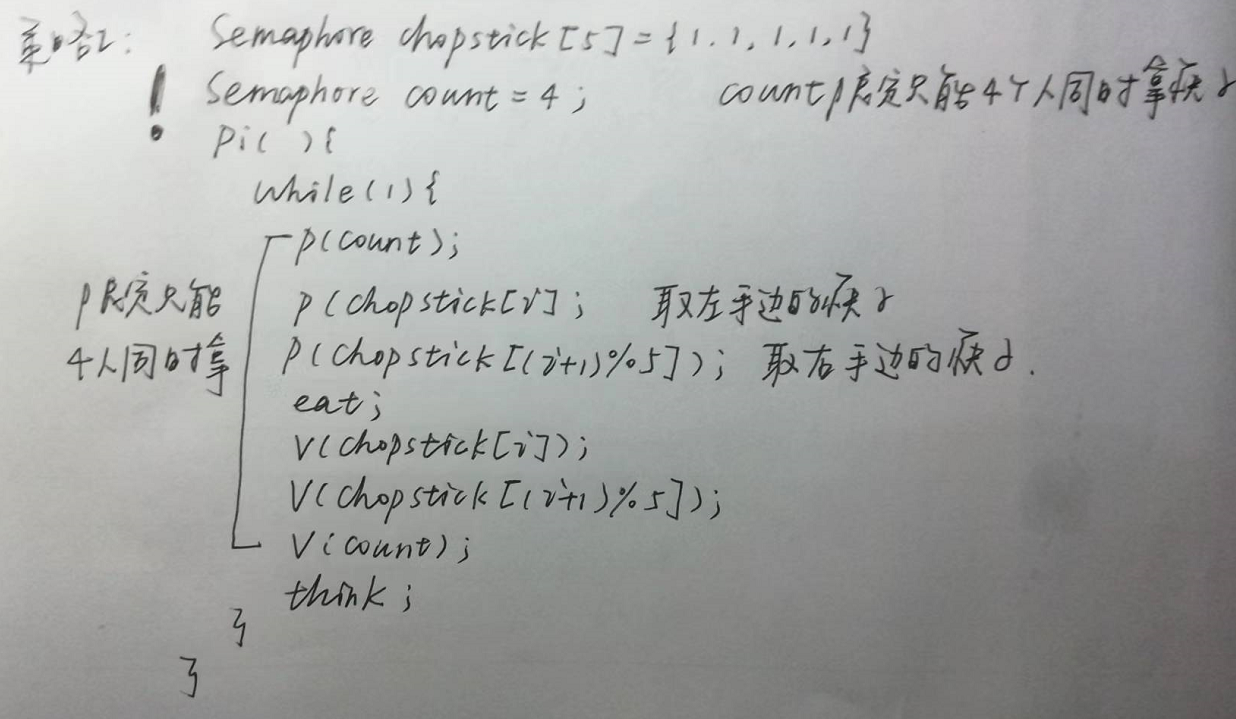 策略2: Semaphore chopstick[5]={1.1,1,1,1}
! Semaphore count=4; count限定只能4个人同时拿筷子
Pi( ){
while(1){
P(count);
限定只能
P(chopstick[i]; 取左手边的筷子
4人同时拿
P(chopstick[(i+1)%5]); 取右手边的筷子.
eat;
V(chopstick[i]);
V(chopstick[(i+1)%5]);
V(count);
think;
}
}